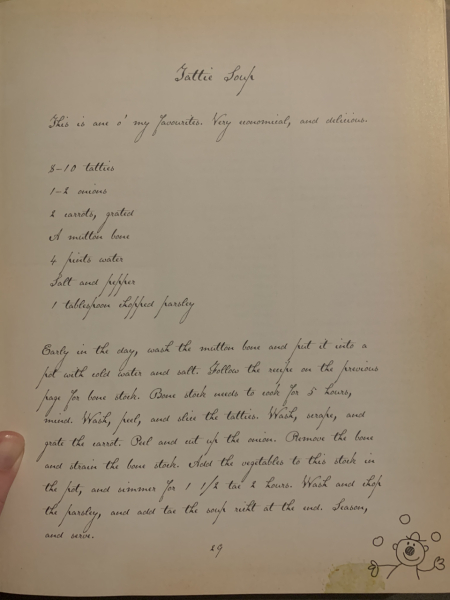 Tattie Soup
This is ane o' my favourites. Very economical, and delicious.
8-10 tatties
1-2 onions
2 carrots, grated
A mutton bone
4 pints water
Salt and pepper
1 tablespoon chopped parsley
Early in the day, wash the mutton bone and put it into a
pot with cold water and salt. Follow the recipe on the previous
page for bone stock. Bone stock needs to cook for 5 hours,
mind. Wash, peel, and slice the tatties. Wash, scrape, and
grate the carrot. Peel and cut up the onion. Remove the bone
and strain the bone stock. Add the vegetables to this stock in
the pot, and simmer for 1 1/2 tae 2 hours. Wash and chop
the parsley, and add tae the soup right at the end. Season,
and serve.
29